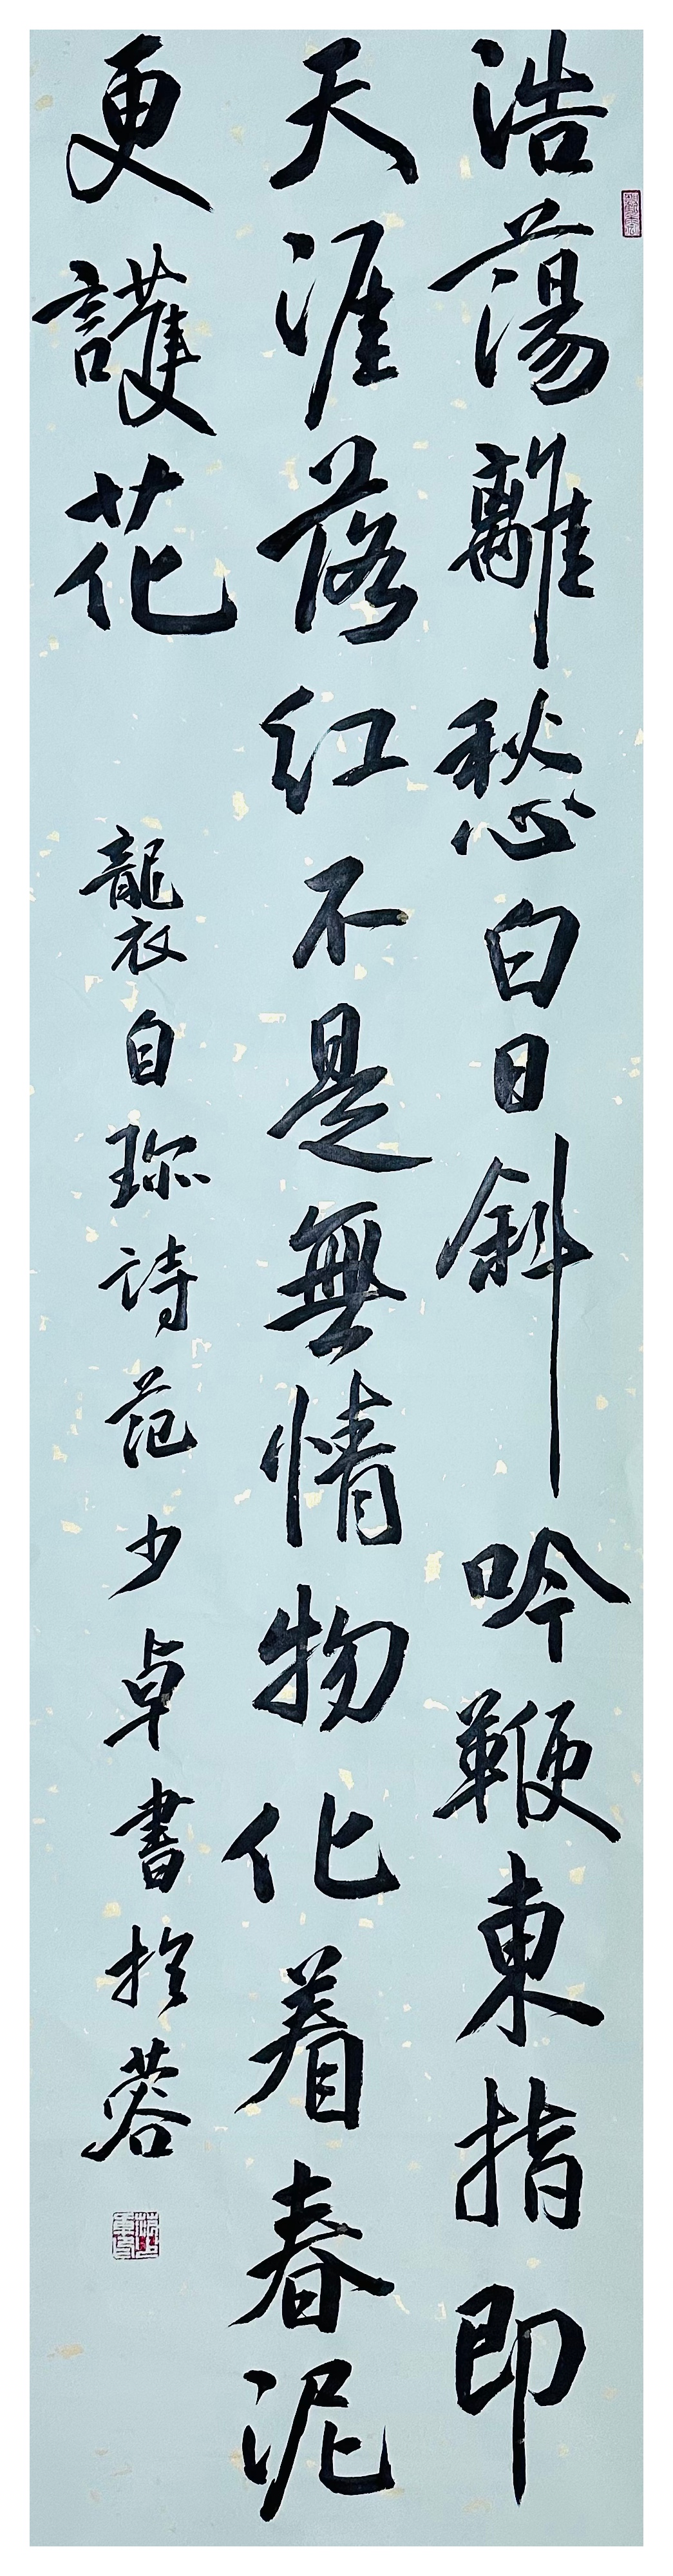 浩蕩離愁白日斜吟鞭東指即
天涯落红不是無情物化着春泥
更護花
襲自珎詩范少卓書於蓉